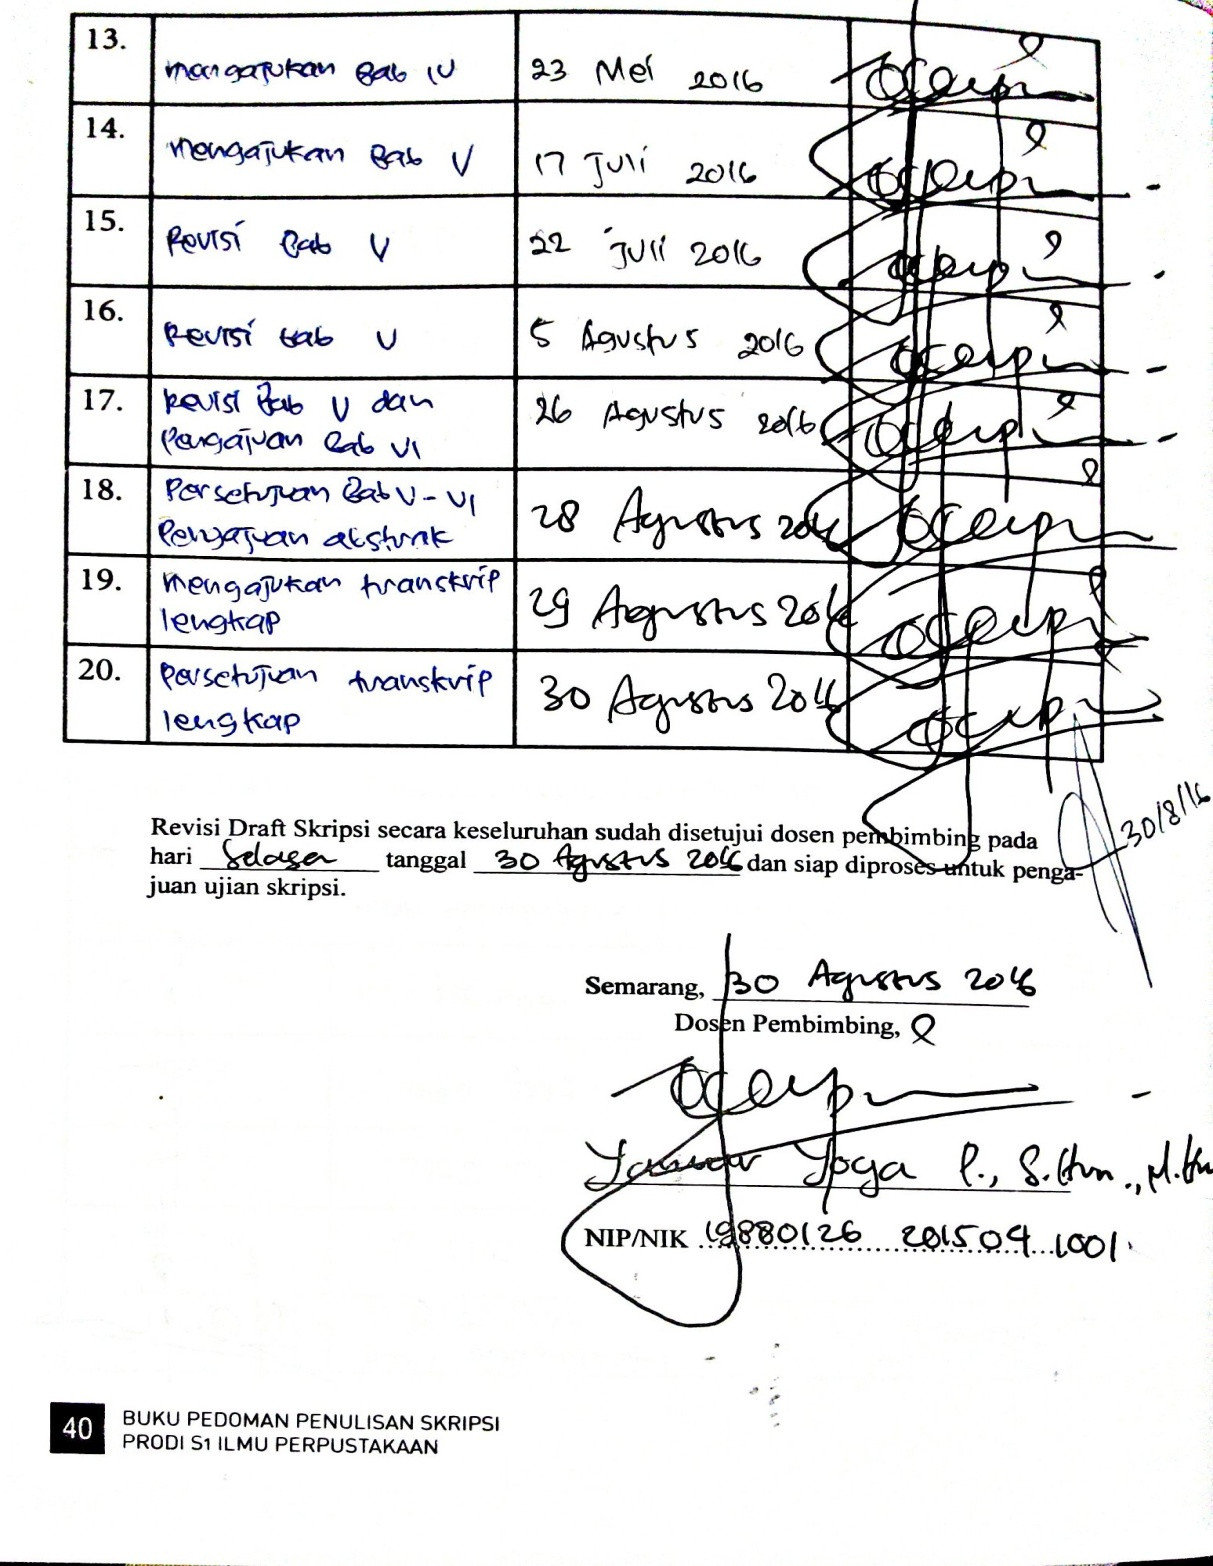 13.
mengajukan Bab IV
23 Mei 2016
14.
mengajukan Bab V
17 Juli 2016
15.
Revisi Bab V
22 Juli 2016
16.
Revisi bab V
5 Agustus 2016
17.
Revisi Bab V dan
Pengajuan Bab VI
26 Agustus 2016
18.
Persetujuan Bab V - VI
Pengajuan abstrak
28 Agustus 2016
19.
mengajukan transkrip
lengkap
29 Agustus 2016
20.
Persetujuan transkrip
lengkap
30 Agustus 2016
30/8/16
Revisi Draft Skripsi secara keseluruhan sudah disetujui dosen pembimbing pada
hari Selasa tanggal 30 Agustus 2016 dan siap diproses untuk penga-
juan ujian skripsi.
Semarang, 30 Agustus 2016
Dosen Pembimbing,
Yoga P., S.Hum., M.Hum
NIP/NIK 19880126 201504 1001.
40
BUKU PEDOMAN PENULISAN SKRIPSI
PRODI S1 ILMU PERPUSTAKAAN